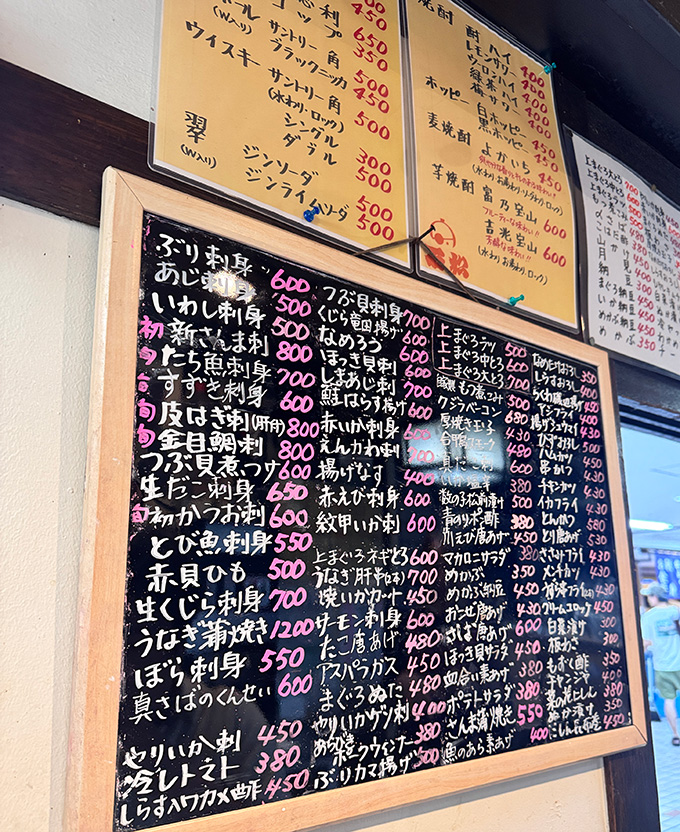 コップ 450
サントリー角 650
(W入り) ブラックニッカ 350
ウイスキー サントリー角 500
(水わり・ロック) 450
シングル
ダブル 500
翠
(W入り) ジンソーダ 300
ジンライムソーダ 500
500
500
焼酎 酎ハイ 400
レモンサワー 400
ウーロンハイ 400
緑茶ハイ 400
梅サワー 400
ホッピー 白ホッピー 450
黒ホッピー 450
麦焼酎 よかいち 450
(水わり・お湯わり・ソーダわり・ロック)
芋焼酎 富乃宝山 600
フルーティーな味わい!!
吉兆宝山 600
芳醇な味わい!!
(水わり お湯わり、ロック)
上まぐろ大とろ 700
上まぐろ中とろ 600
山かけ
月見
納豆
まぐろ納豆
いか納豆
めかぶ 350
ぶり刺身 600
あじ刺身 500
いわし刺身 500
初旬 新さんま刺 800
たち魚刺身 700
すずき刺身 600
旬 皮はぎ刺(肝付) 800
旬 金目鯛刺 800
つぶ貝煮つけ 600
生だこ刺身 650
旬 初かつお刺 600
とび魚刺身 550
赤貝ひも 500
生くじら刺身 700
うなぎ蒲焼き 1200
ぼら刺身 550
真さばのくんせい 600
やりいか刺 450
冷しトマト 380
しらすワカメ酢 450
つぶ貝刺身 700
くじら竜田揚げ 600
なめろう 600
ほっき貝刺 600
しまあじ刺 700
鮭はらす揚げ 600
赤いか刺身 600
えんがわ刺 700
揚げなす 400
赤えび刺身 600
紋甲いか刺 600
上まぐろネギとろ 600
うなぎ肝串(2本) 700
焼いかカット 450
サーモン刺身 600
たこ唐あげ 480
アスパラガス 450
まぐろぬた 480
やりいかゲソ刺 400
あら挽ポークウィンナー 380
ぶりカマ揚げ 500
上まぐろテツ 500
上まぐろ中とろ 600
上まぐろ大とろ 700
もつ煮こみ 500
クジラベーコン 680
厚焼き玉子 430
合鴨スモーク 480
真だこ刺 600
いか塩辛 430
数の子松前漬け 500
青のりポン酢 380
川えび唐あげ 450
マカロニサラダ 380
めかぶ 350
めかぶ納豆 450
おこぜ唐あげ
さば唐あげ 600
ほっき貝サラダ 450
血合い素あげ 380
ポテトサラダ 380
さんま蒲焼き 550
魚のあら素あげ 400
なめたけおろし 350
しらすおろし 400
ちくわ磯辺揚げ 450
アジフライ 400
揚げギョウザ 430
ハムカツ 450
串カツ 430
チキンカツ 430
イカフライ 430
とんかつ 580
とり唐あげ 530
ささみフライ 430
メンチカツ 430
クリームコロッケ 450
白菜漬け 300
板わさ 300
もずく酢 350
チャンジャ 380
菜の花にしん 380
めか漬け 350
にしん長有漬 450